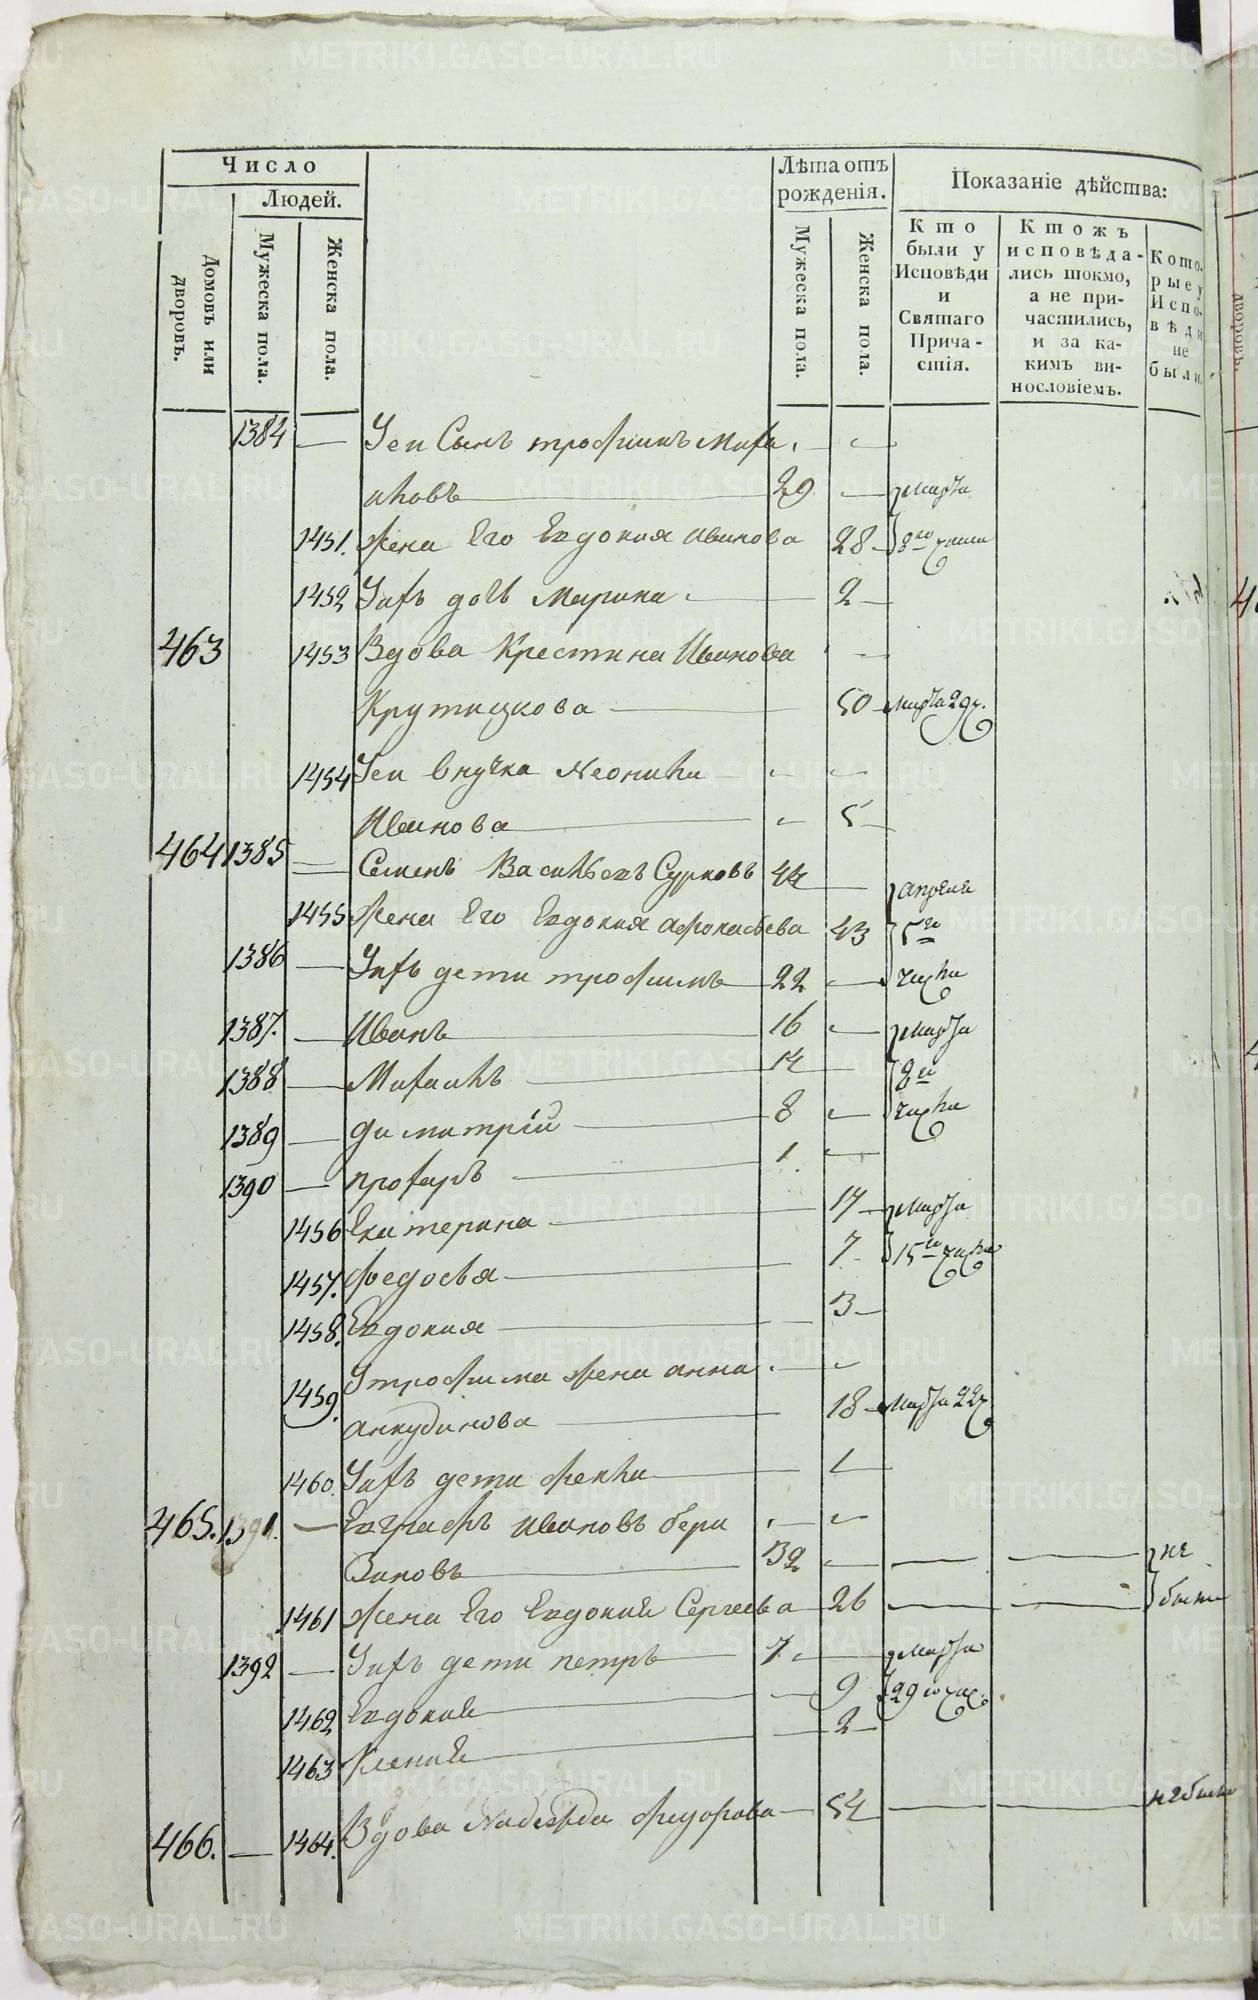 Число
Людей.
Домовъ или дворовъ.
Мужеска пола.
Женска пола.
Лѣта отъ рожденія.
Мужеска пола.
Женска пола.
Показаніе дѣйства:
Кто были у Исповѣди и Святаго Прича-стія.
Ктожъ исповѣда-лись токмо, а не при-частились, и за ка-кимъ ви-нословіемъ.
Кото-рые у Испо-вѣди не были.
1384 — Ееи Сынъ трофимъ Миха
иловъ 29 — Марта
1451. жена Его Евдокия иванова 28 — 8го числа
1452 Уихъ дочь Марина — 2 —
463 1453 Вдова Крестина Иванова —
Крутицкова — 50 — Марта 29 ч.
1454 Уеи внучка Неонила — —
Иванова — 5 —
464 1385 — Семенъ Васильевъ Сурковъ 44 — апреля
1455 жена Его Евдокия афонасьева 43 5го
1386 — Уихъ дети трофимъ 22 — числа
1387. — Иванъ 16 — Марта
1388 — Михаилъ 14 — 8го
1389 — димитрій 8 — числа
1390 — прохаръ 1 —
1456 Екатерина — 17 — Марта
1457. федосья — 7 — 15го числа
1458. Евдокия — 3 —
1459. Утрофима жена анна —
анкудинова — 18 — Марта 22 ч.
1460. Уихъ дети фекла — 1 —
465. 1391. — Евграфъ Ивановъ бери
Зиковъ 32 — — — не
1461 жена Его Евдокия Сергеева 26 — — были
1392 — Уихъ дети петръ 7 — Марта
1462 Евдокия — 9 29го чис.
1463 Ксения — 2 —
466. — 1464. Вдова Надежда федорова — 54 — — не были